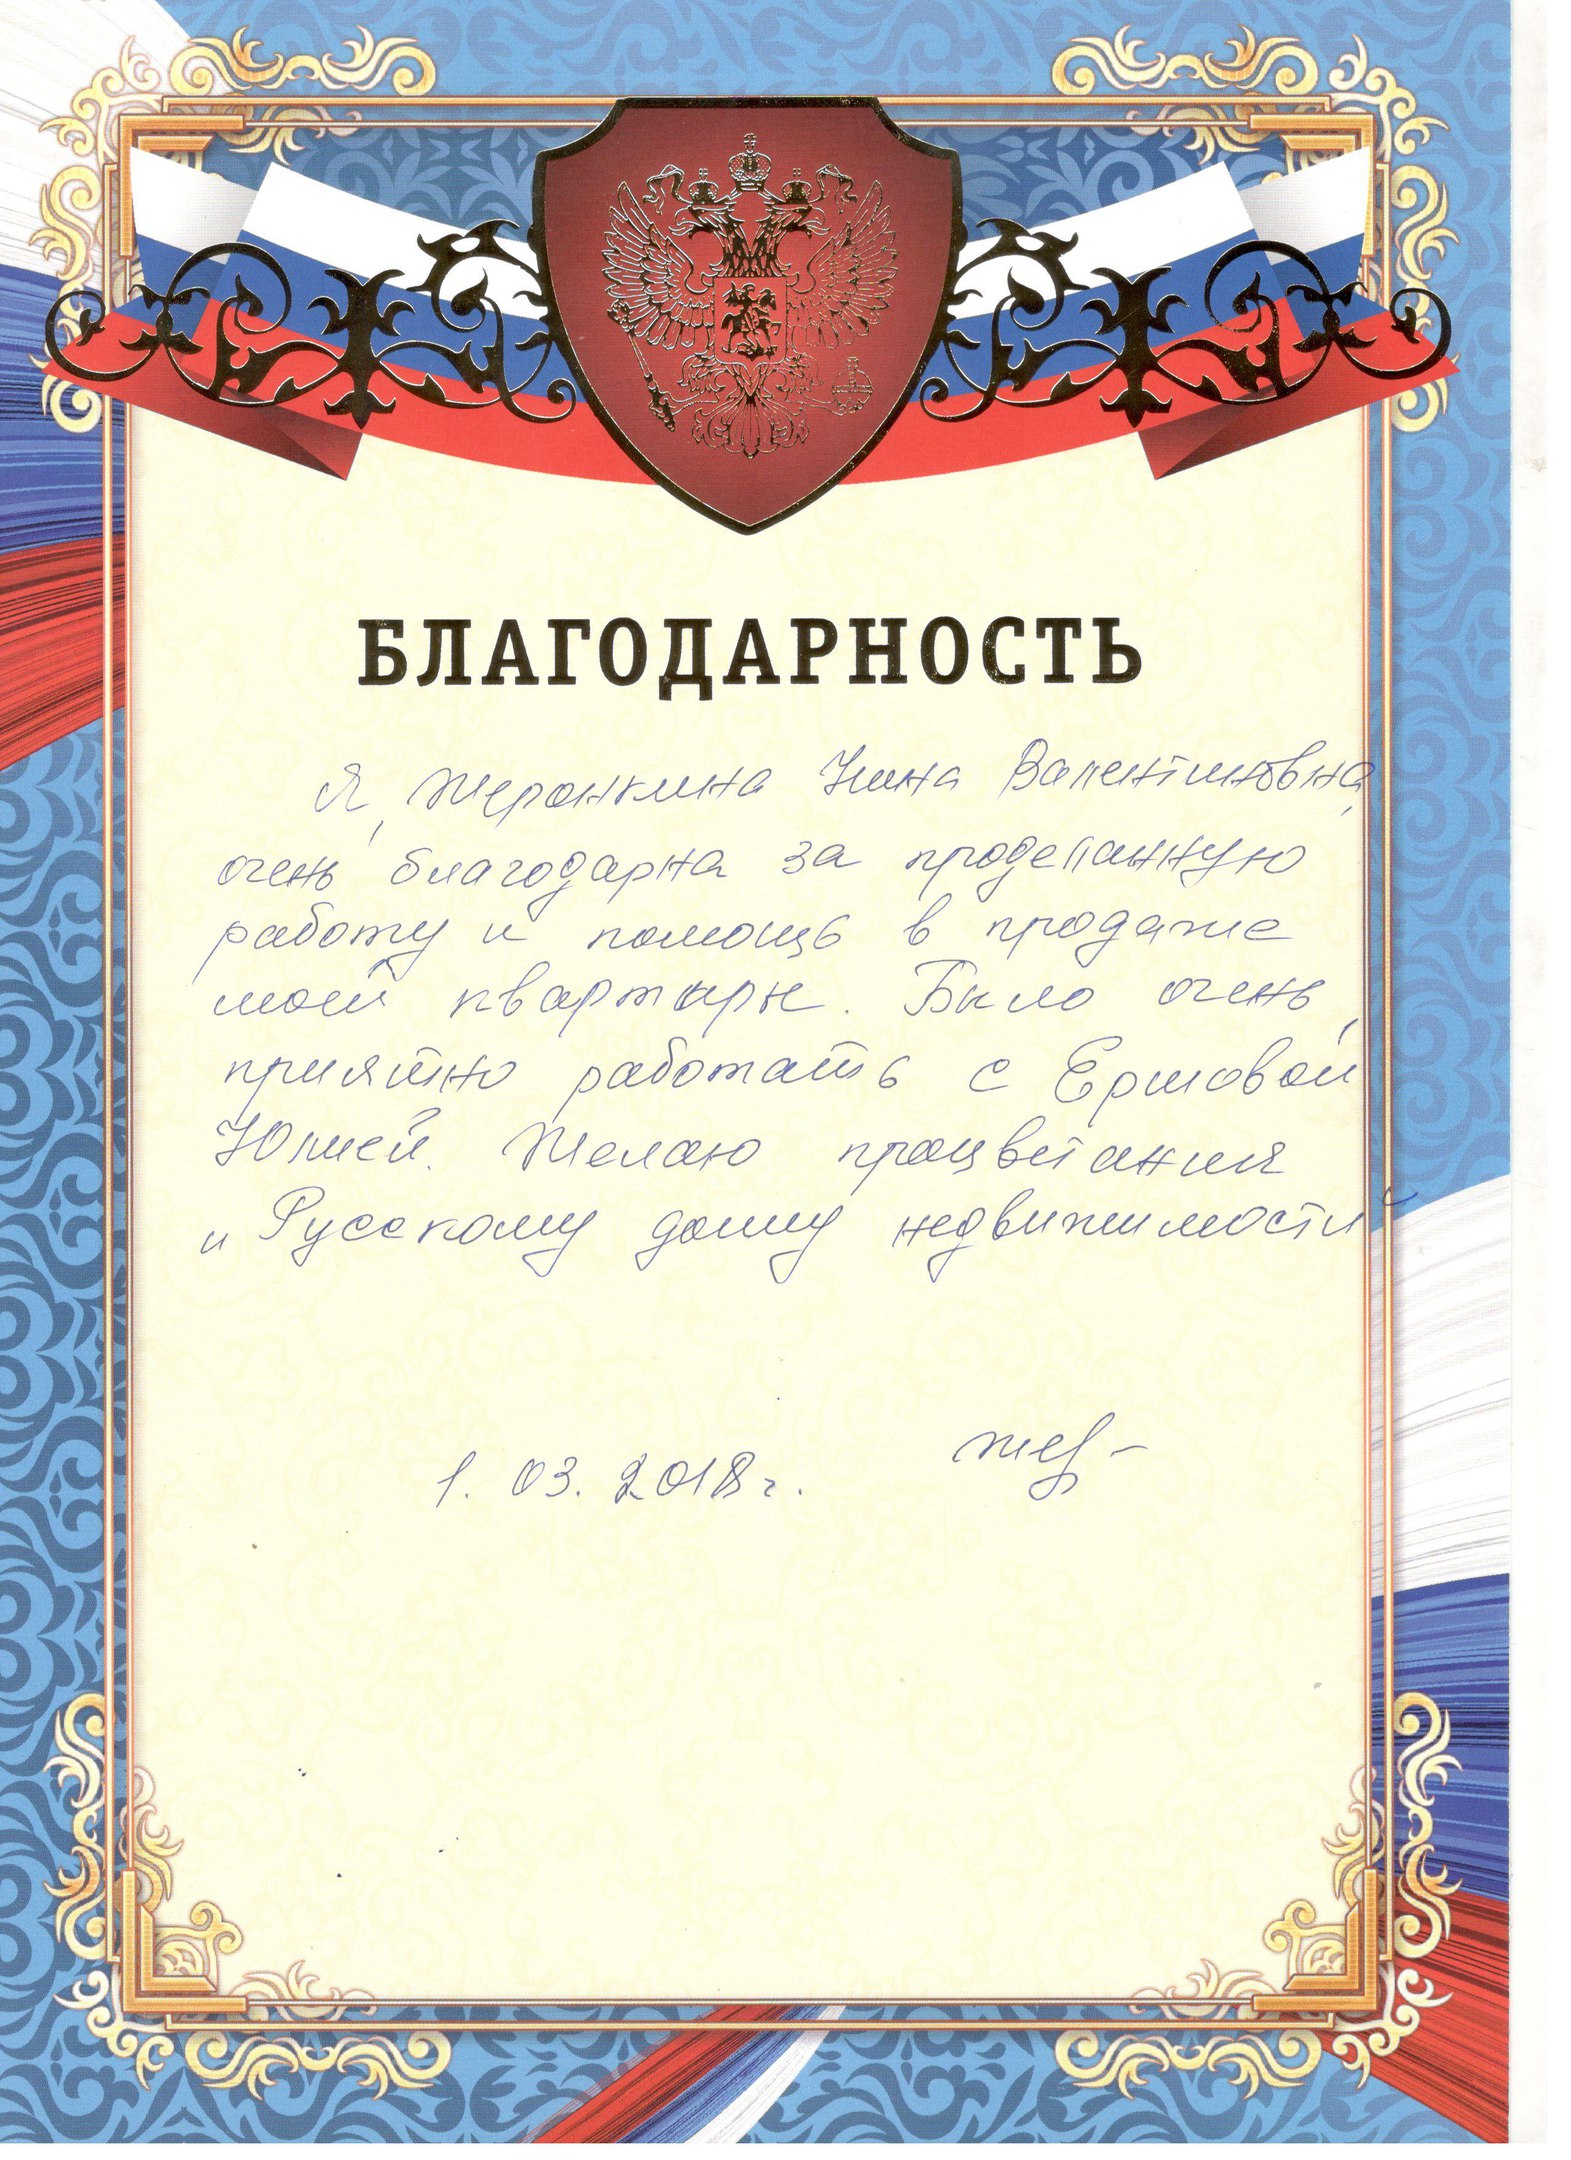 БЛАГОДАРНОСТЬ
Я, Жеронкина Нина Валентиновна,
очень благодарна за проделанную
работу и помощь в продаже
моей квартиры. Было очень
приятно работать с Ершовой
Юлией. Желаю процветания
"Русскому дому недвижимости"
1.03.2018г.